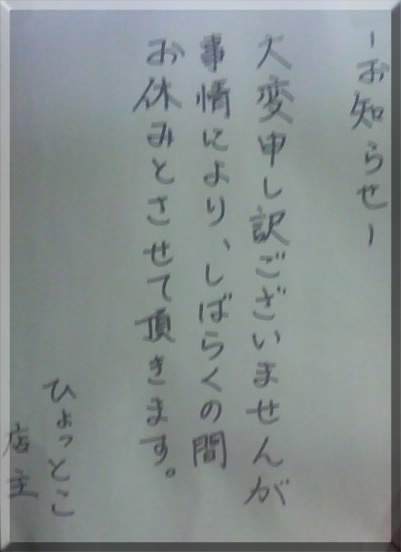 ーお知らせー
大変申し訳ございませんが
事情により、しばらくの間
お休みとさせて頂きます。
ひょっとこ
店主